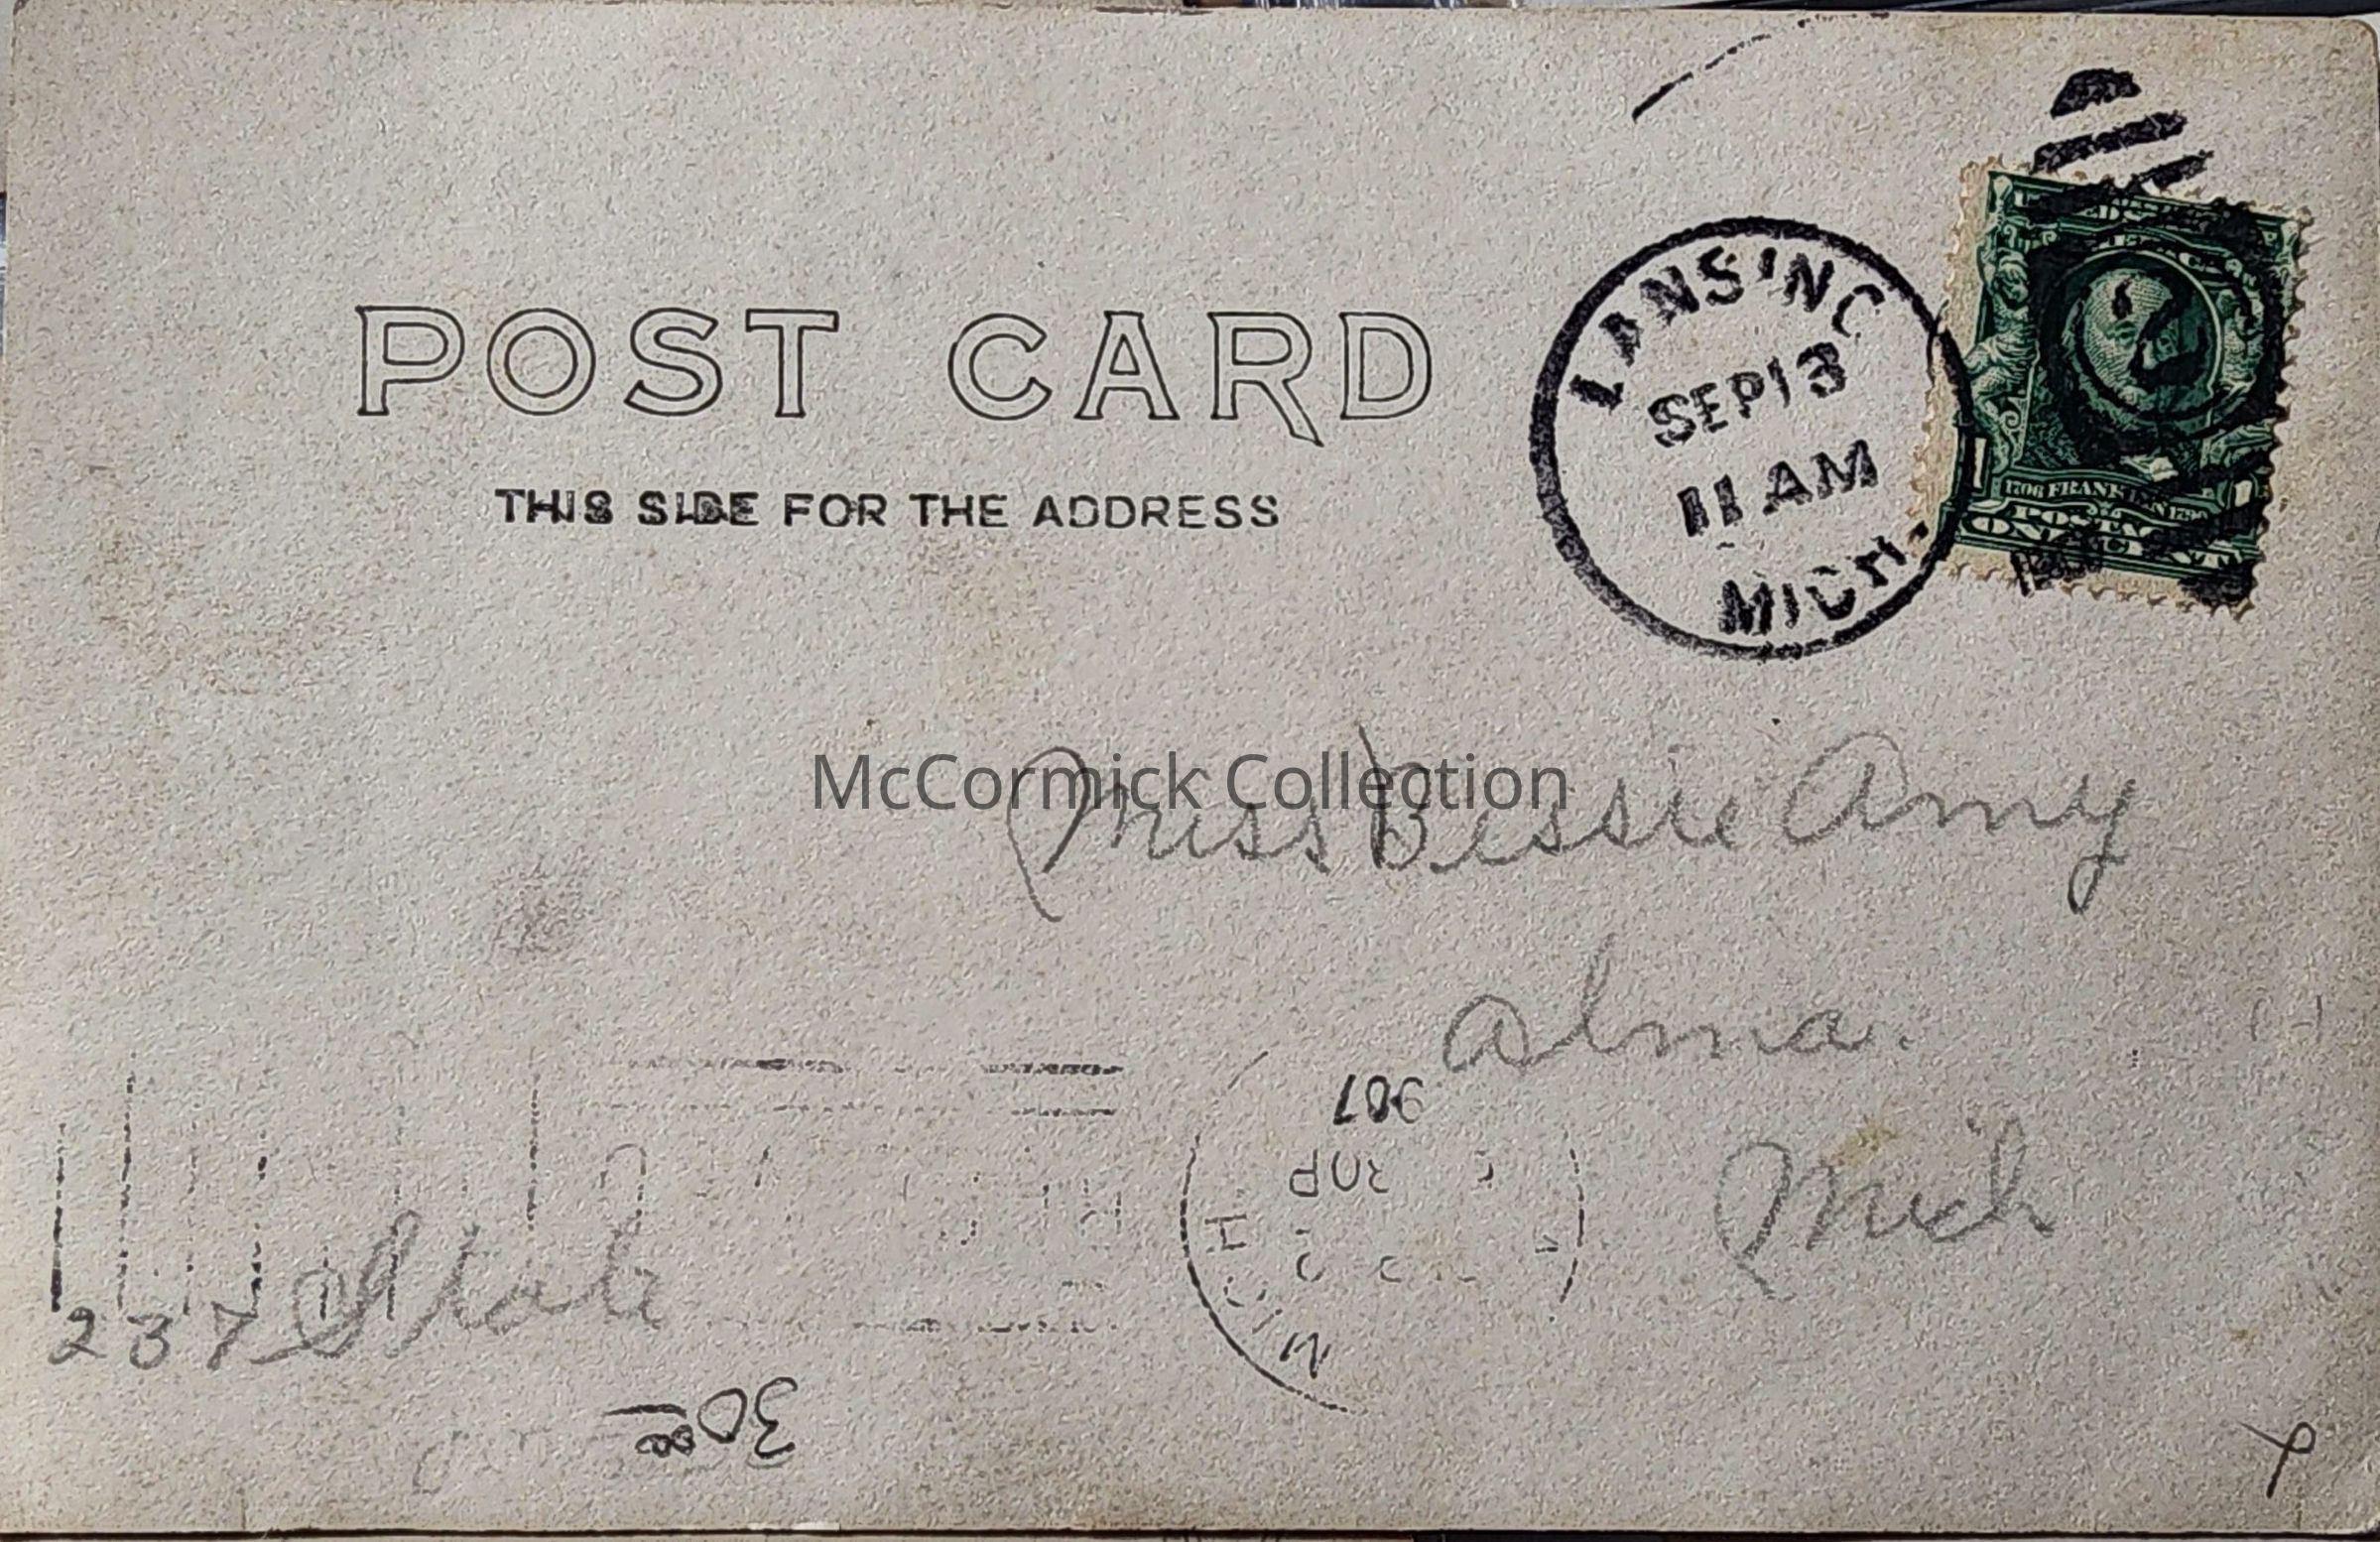 POST CARD
THIS SIDE FOR THE ADDRESS
LANSING
SEP 13
11 AM
MICH.
2
1 1706 FRANKLIN 1790 1
POSTAGE
ONE CENT
McCormick Collection
Miss Bessie Amy
Alma.
Mich
907
30P
MICH
237 State
30